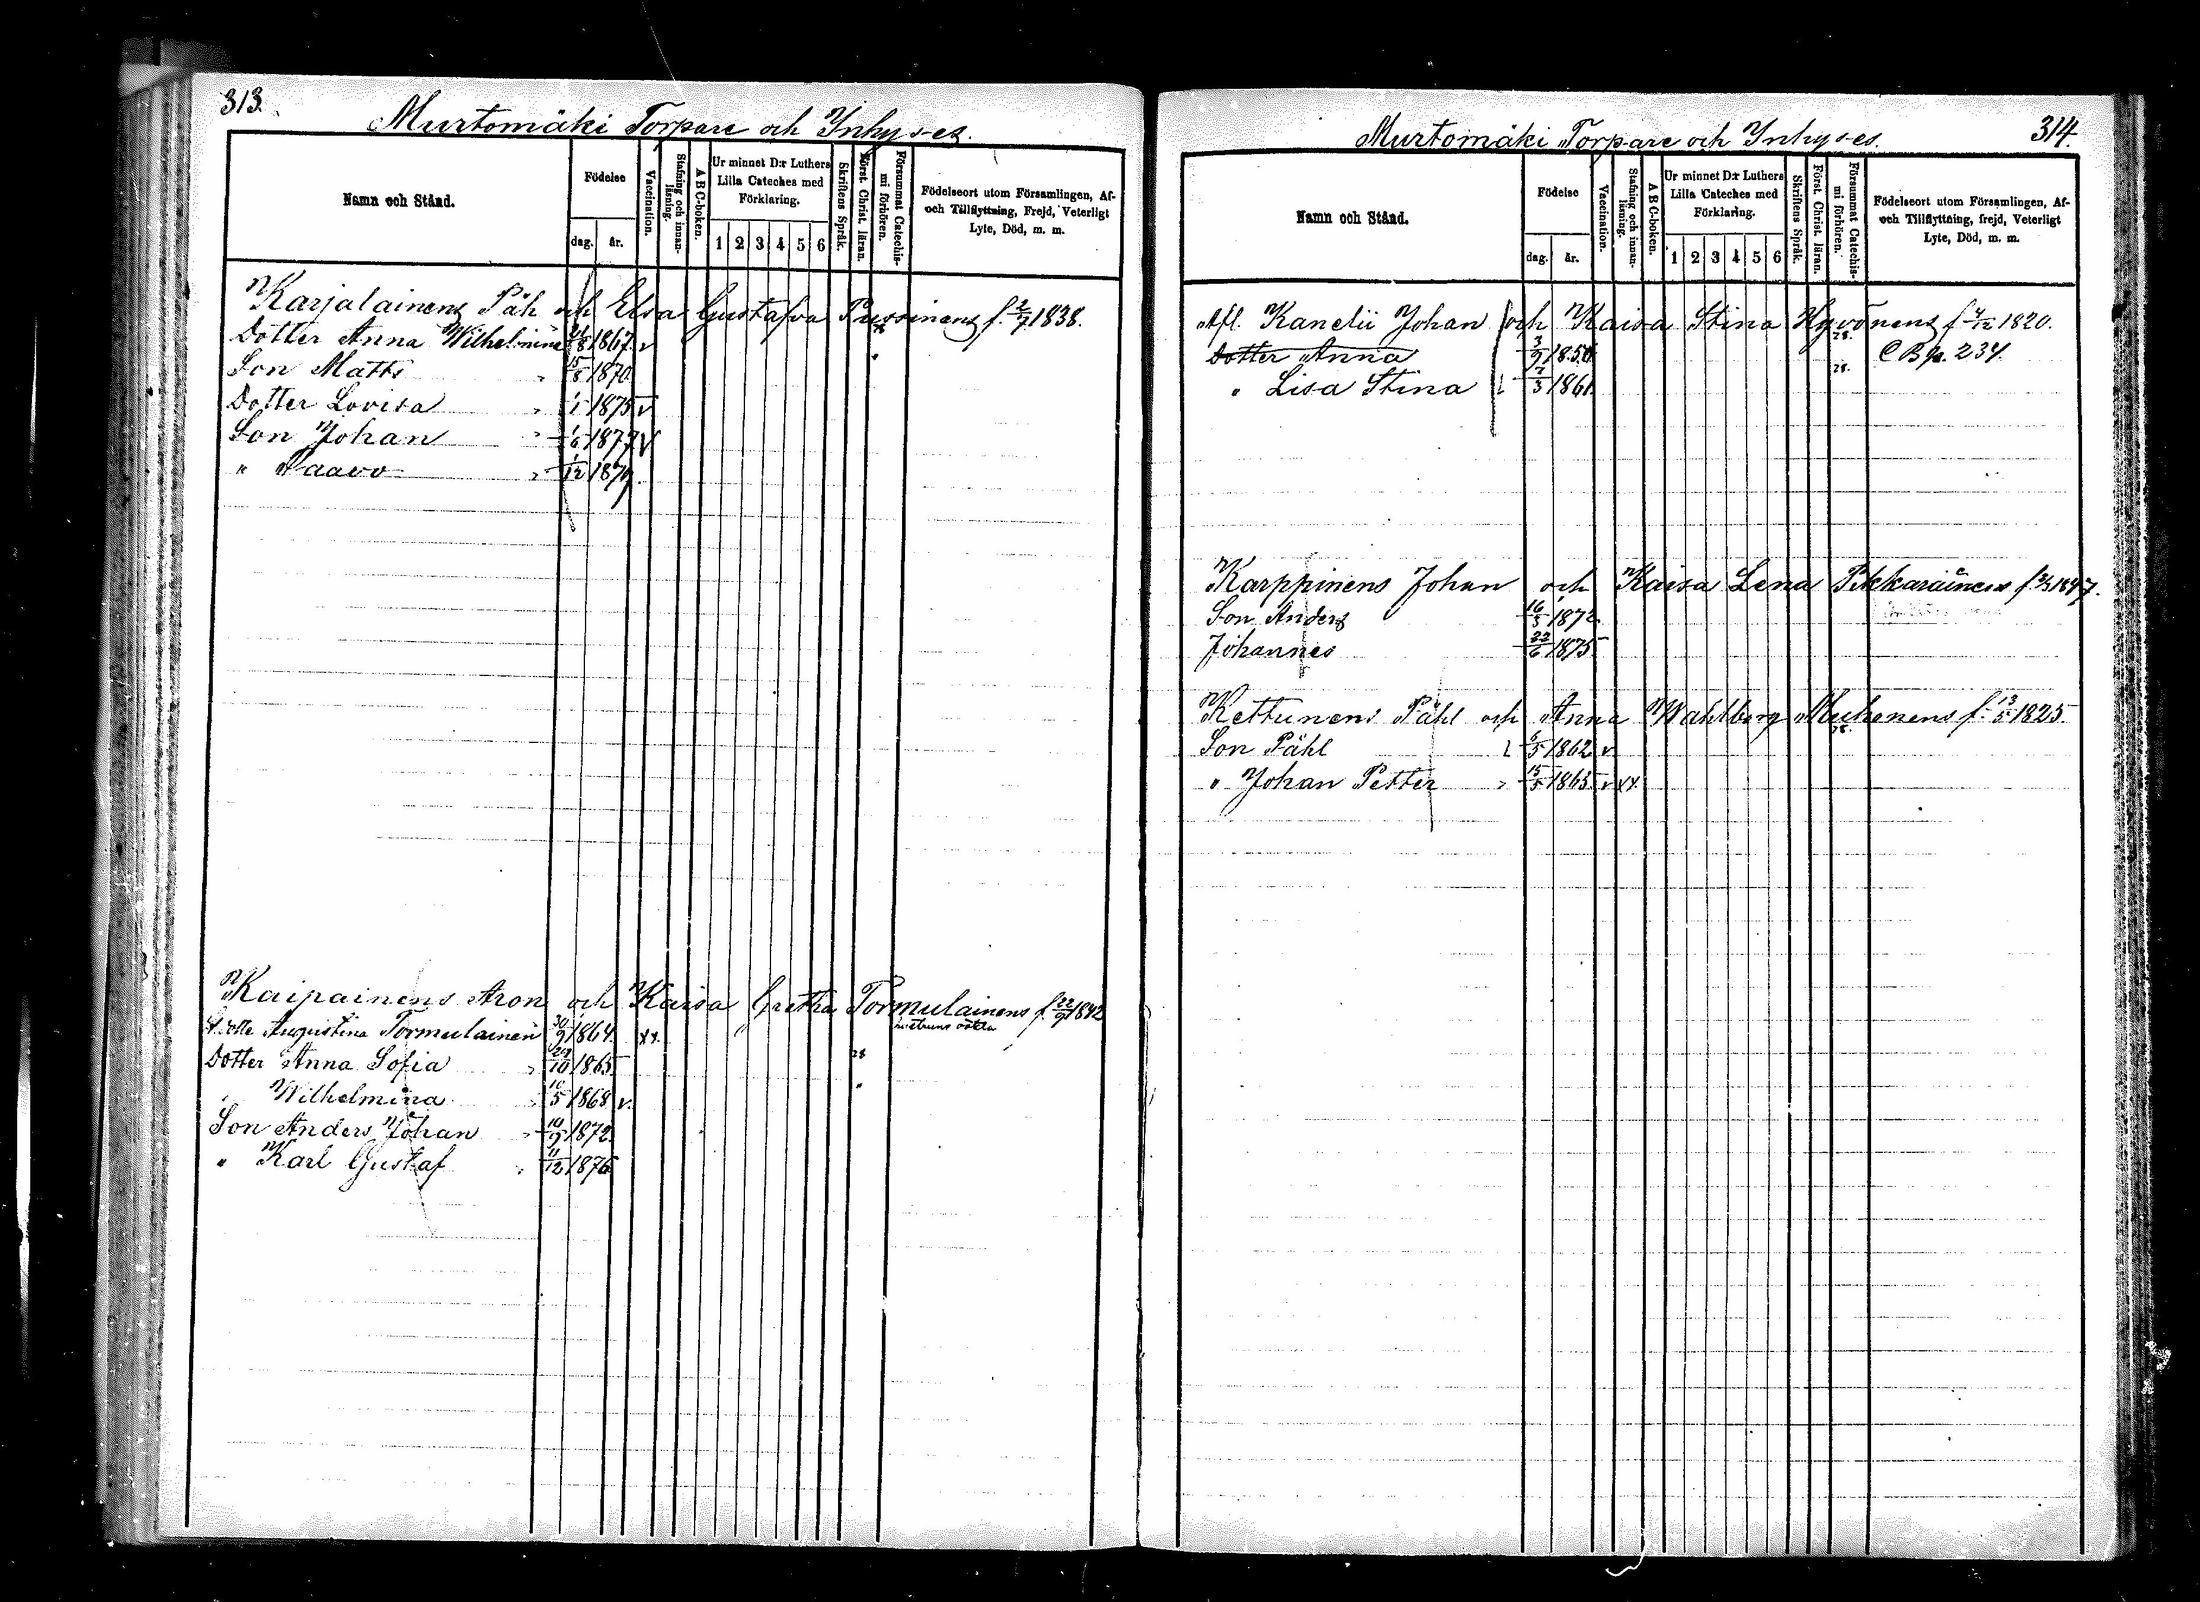 313.
Murtomäki Torpare och Ynhyses.
Namn och Stånd.
Födelse
dag. år.
Vaccination.
Stafning och innanläsning.
ABC-boken.
Ur minnet D:r Luthers Lilla Cateches med Förklaring.
1 2 3 4 5 6
Skriftens Språk.
Först. Christ. läran.
Försummat Catechismi förhören.
Födelseort utom Församlingen, Af- och Tillflyttning, Frejd, Veterligt Lyte, Död, m. m.
Karjalainens Påhl och Elsa Gustafva Pursinens f. 2/7 1838.
Dotter Anna Wilhelmina 1867. v
Son Matts 15/8 1870
Dotter Lovisa 1875 v
Son Johan 1/6 1877 v
" Paavo 1/12 1879.
Kaipainens Aron och Kaisa Gretha Tormulainens f. 22/9 1842
Augustina Tormulainen 30/9 1864. xx.
Dotter Anna Sofia 24/10 1865 28
Wilhelmina 10/5 1868 v. "
Son Anders Johan 10/9 1872
" Karl Gustaf 11/12 1876
314.
Murtomäki Torpare och Ynhyses.
Namn och Stånd.
Födelse
dag. år.
Vaccination.
Stafning och innanläsning.
ABC-boken.
Ur minnet D:r Luthers Lilla Cateches med Förklaring.
1 2 3 4 5 6
Skriftens Språk.
Först. Christ. läran.
Försummat Catechismi förhören.
Födelseort utom Församlingen, Af- och Tillflyttning, frejd, Veterligt Lyte, Död, m. m.
Afl. Kanelii Johan och Kaisa Stina Hyvönens f. 4/12 1820.
Dotter Anna 3/9 1850 28. C B p. 234.
" Lisa Stina 7/3 1861 28.
Karppinens Johan och Kaisa Lena Pikkarainens f. 1847.
Son Anders 16/5 1872
Johannes 22/6 1875
Kettunens Påhl och Anna Wahlborg Muhonens f. 13/5 1825.
Son Påhl 6/5 1862 v
" Johan Petter 15/5 1865 v xx.